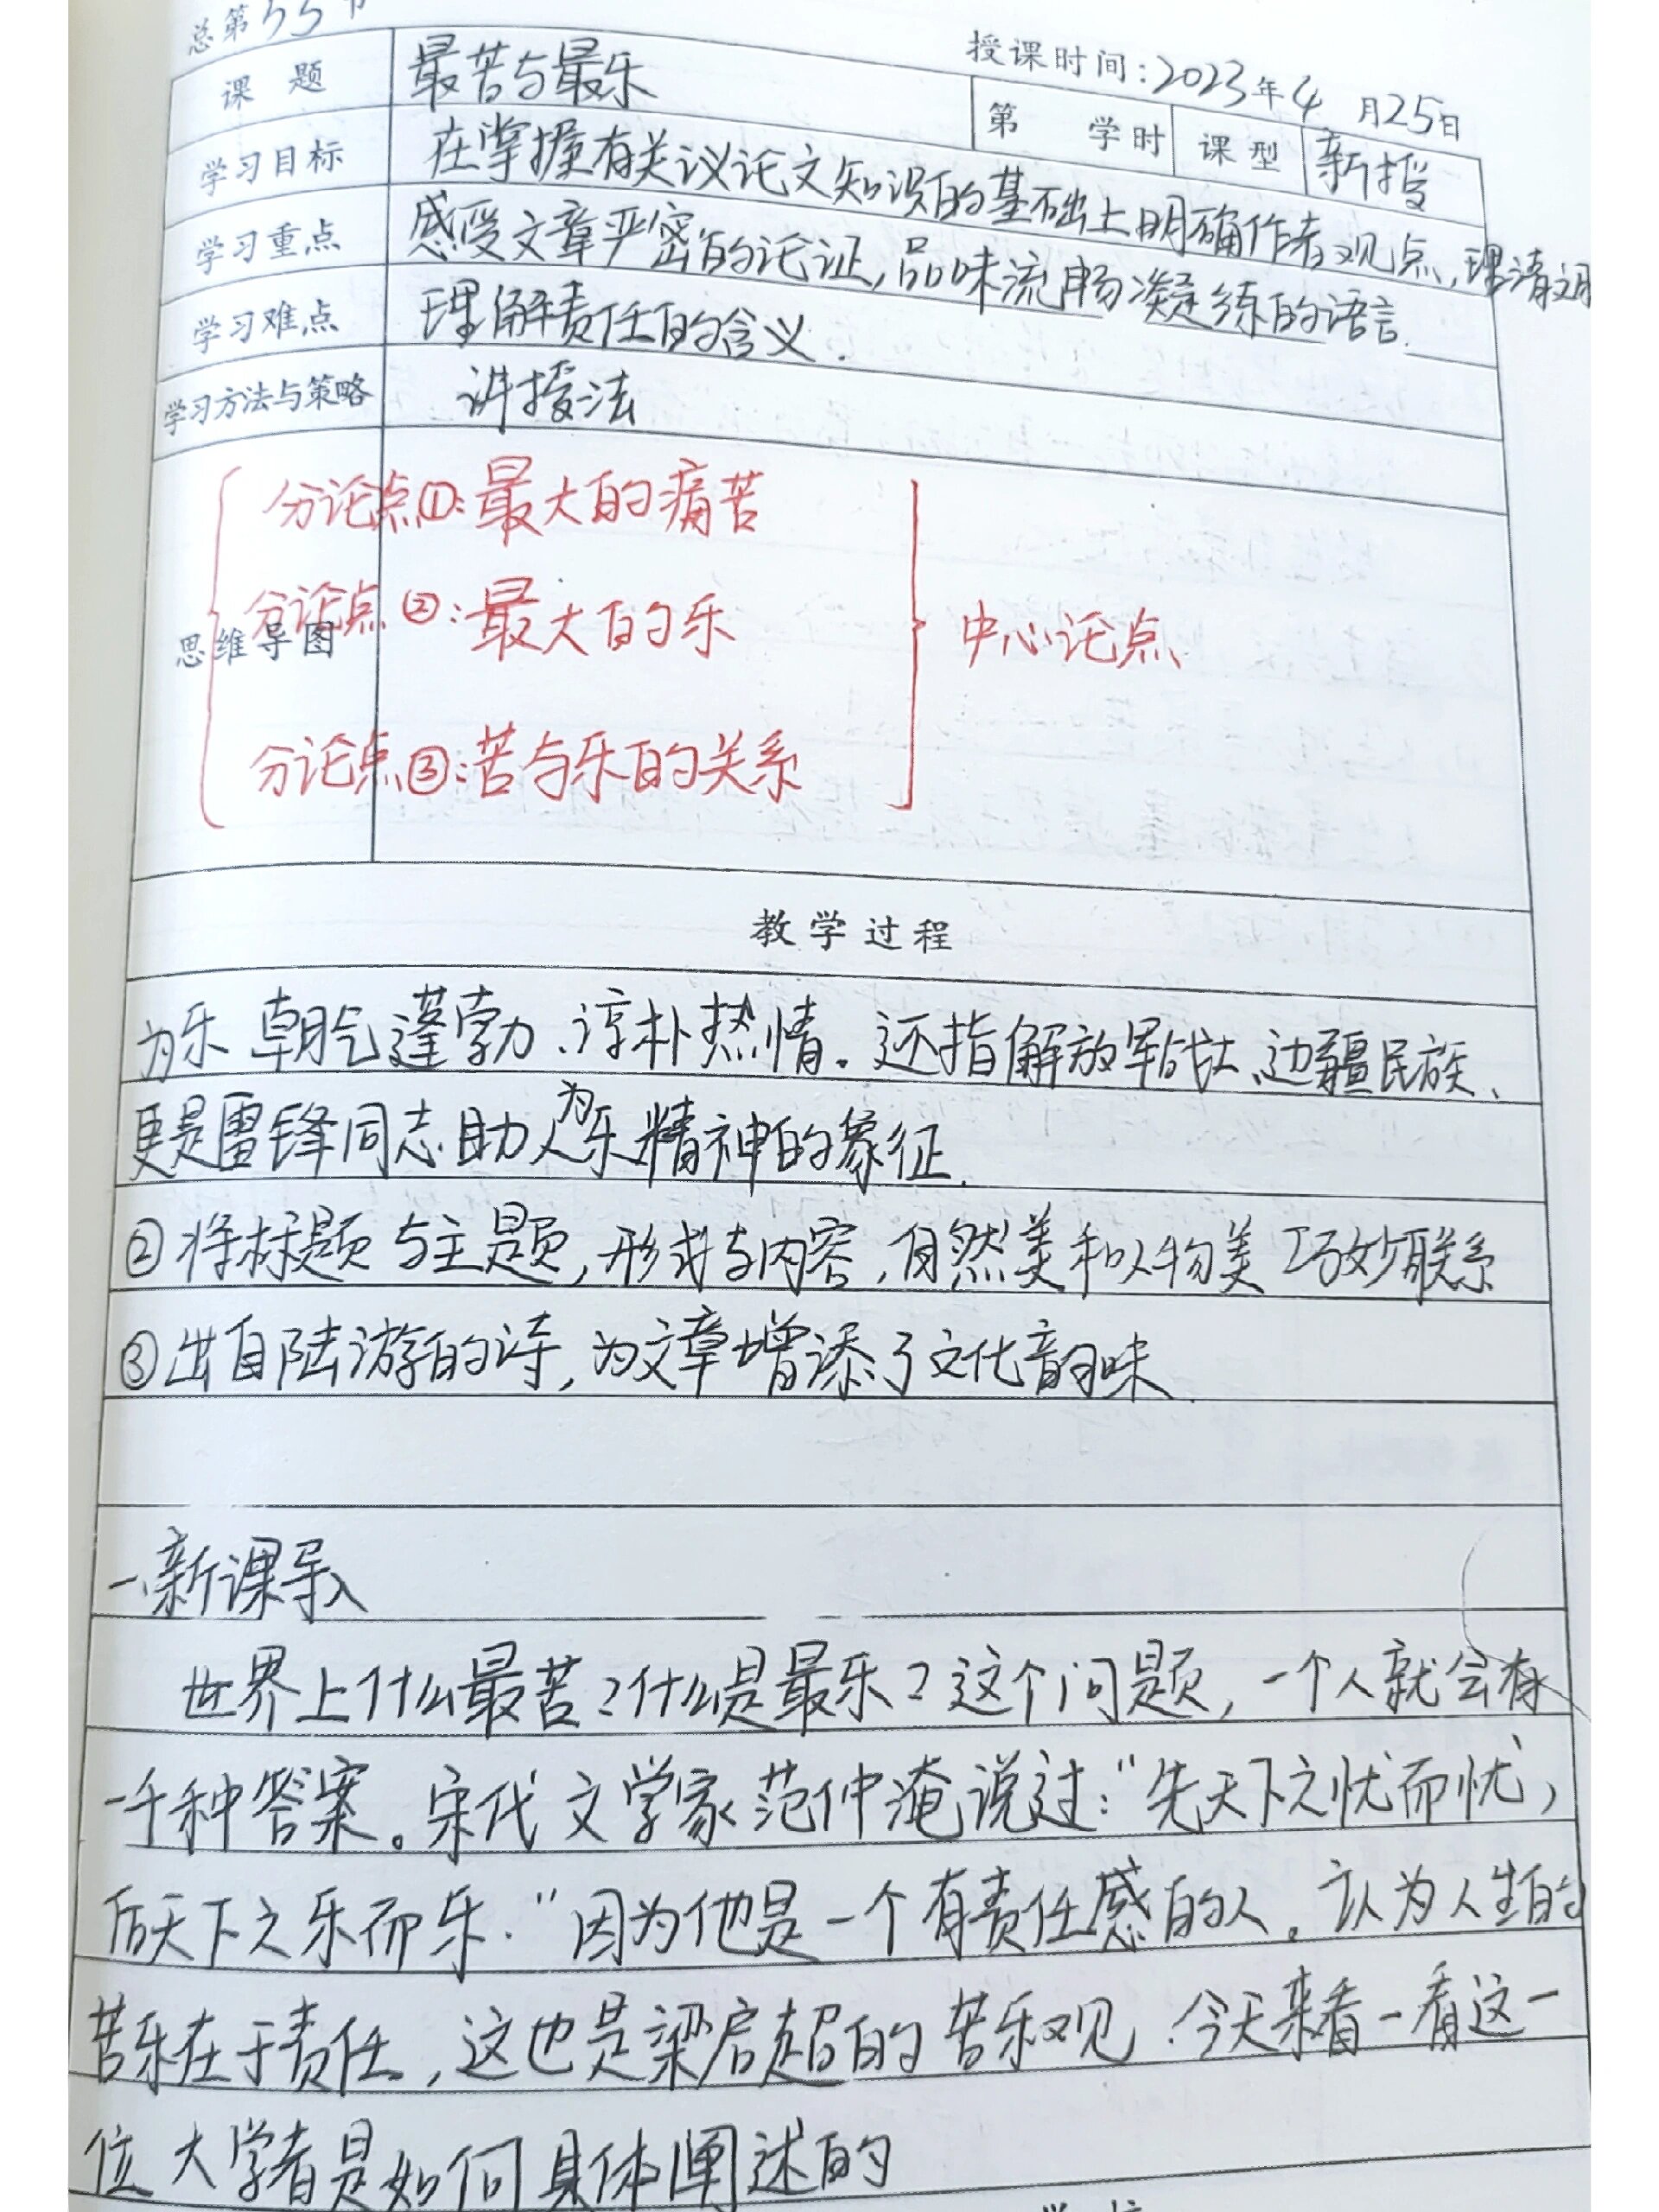 总第55节
授课时间:2023年4月25日
课题 最苦与最乐 第 学时 课型 新授
学习目标 在掌握有关议论文知识的基础上明确作者观点,理清文
学习重点 感受文章严密的论证,品味流畅凝练的语言.
学习难点 理解责任的含义.
学习方法与策略 讲授法
分论点①:最大的痛苦
分论点②:最大的乐
思维导图
中心论点
分论点③:苦与乐的关系
教学过程
为乐 朝气蓬勃、淳朴热情。还指解放军战士、边疆民族、
更是雷锋同志助人为乐精神的象征.
②将标题与主题,形式与内容,自然美和人物美巧妙联系
③出自陆游的诗,为文章增添了文化韵味.
一、新课导入
世界上什么最苦?什么是最乐?这个问题,一个人就会有
一千种答案。宋代文学家范仲淹说过:“先天下之忧而忧,
后天下之乐而乐.”因为他是一个有责任感的人。认为人生的
苦乐在于责任,这也是梁启超的苦乐观.今天来看一看这一
位大学者是如何具体阐述的